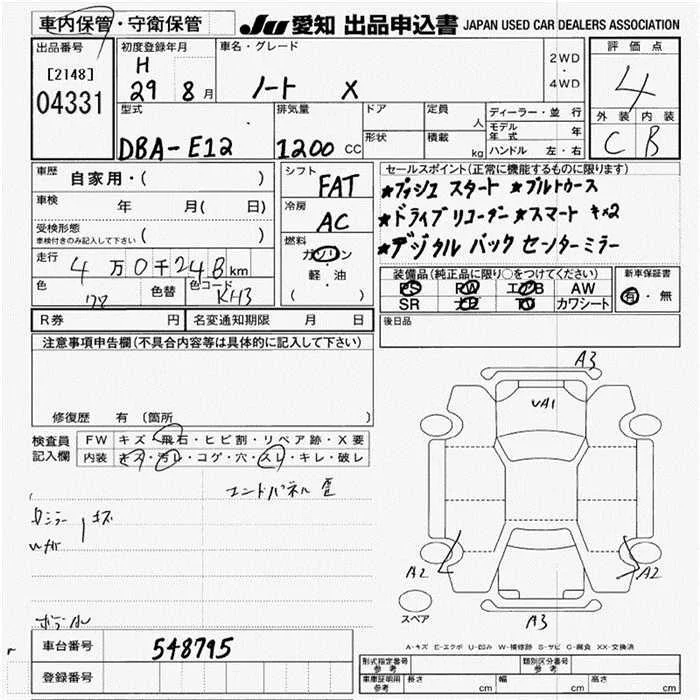 車内保管・守衛保管
JU 愛知 出品申込書 JAPAN USED CAR DEALERS ASSOCIATION
出品番号 初度登録年月 車名・グレード 評価点
[2148] H 2WD・4WD 4
04331 29 8月 ノート X 外装 内装
C B
型式 排気量 ドア 定員 人 ディーラー・並行
モデル年式 年
DBA-E12 1200 CC 形状 積載 kg ハンドル 左・右
車歴 自家用・( ) シフト FAT セールスポイント(正常に機能するものに限ります)
車検 年 月( 日) 冷房 AC ★プッシュ スタート ★ブルートゥース
受検形態 車検付きのみ記入して下さい ( ) ★ドライブレコーダー ★スマートキー×2
走行 4万0千248km 燃料 ガソリン 軽・油 ( ) ★デジタル バック センターミラー
色 色替 色コード KH3 装備品(純正品に限り○をつけてください) 新車保証書
PS PW エアB AW 有・無
SR ナビ TV カワシート
R券 円 名変通知期限 月 日 後日品
注意事項申告欄(不具合内容等は具体的に記入して下さい)
修復歴 有 (箇所 )
検査員記入欄 FW キズ・飛石・ヒビ割・リペア跡・X要
内装 キズ・汚レ・コゲ・穴・スレ・キレ・破レ
エンドパネル歪
キズ
A3
UA1
A2 A2
スペア
A3
A-キズ E-エクボ U-凹み W-補修跡 S-サビ C-腐食 XX-交換済
車台番号 548795
登録番号
形式指定番号 参考 類別区分番号 参考
車庫証明用 参考 長さ cm 幅 cm 高さ cm